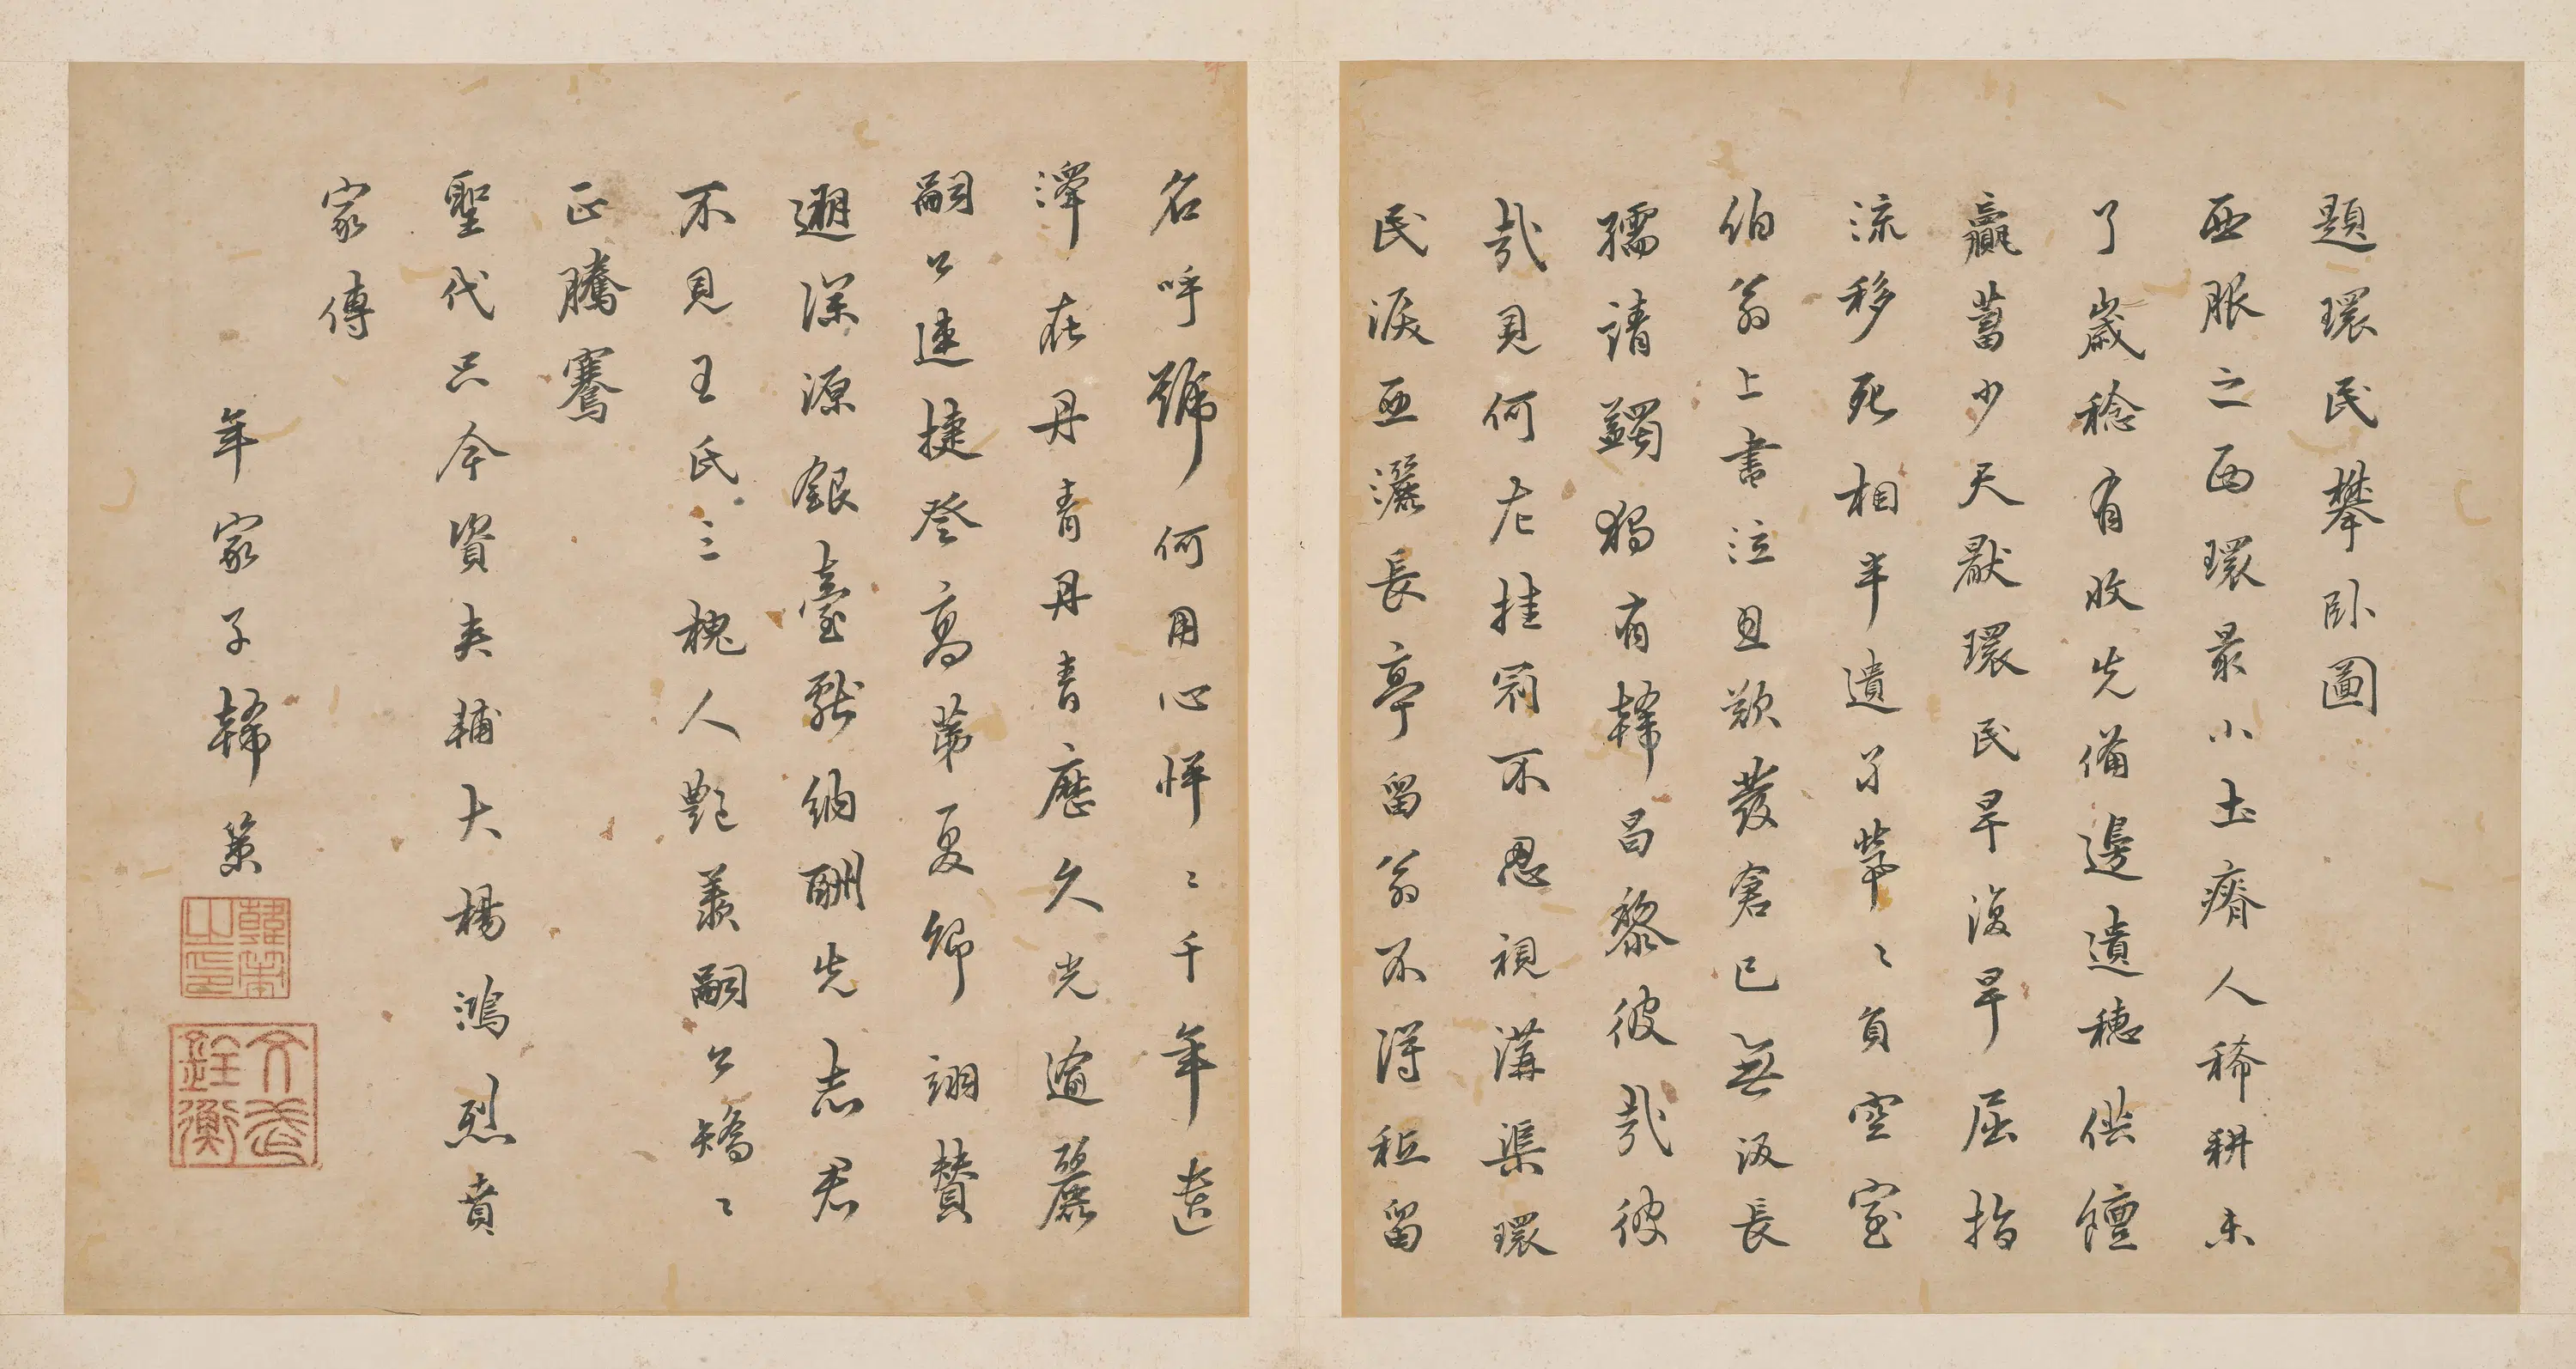 題環民攀臥圖
西服之西環最小土瘠人稀耕未
了歲稔有收先備邊遺穗供饘
蓄少天厭環民旱復旱屈指
流移死相半遺孑煢〻負空室
伯翁上書泣且歎發倉已無汲長
孺請蠲獨有韓昌黎彼哉彼
哉見何左挂冠不忍視溝渠環
民淚西灑長亭留翁不得秪留
名呼號何用心怦〻千年遺
澤在丹青丹青歷久光逾麗
嗣公連捷登高第夏卿翊贊
遡深源銀臺猷納酬先志君
不見王氏三槐人艷羨嗣公矯〻
正騰騫
聖代只今資夾輔大楊鴻烈賁
家傳
年家子韓菼